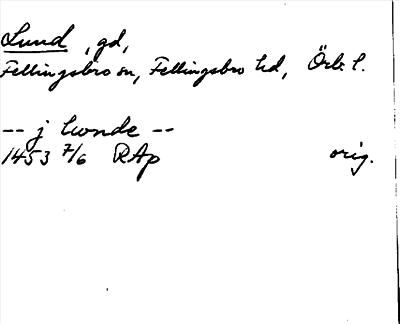 Lund, gd,
Fellingsbro sn, Fellingsbro hd, Örb. l.
-- j lwnde --
1453 7/6 RAp orig.